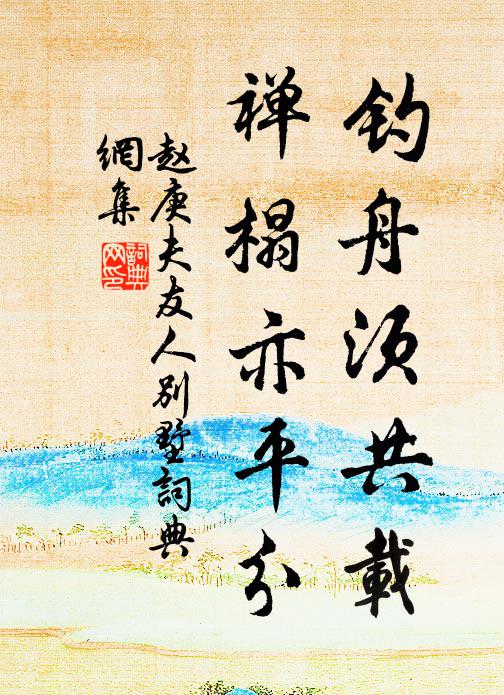 钓舟须共載
禅榻亦平分
赵庚夫友人别墅詞典
網集
詞典
网印